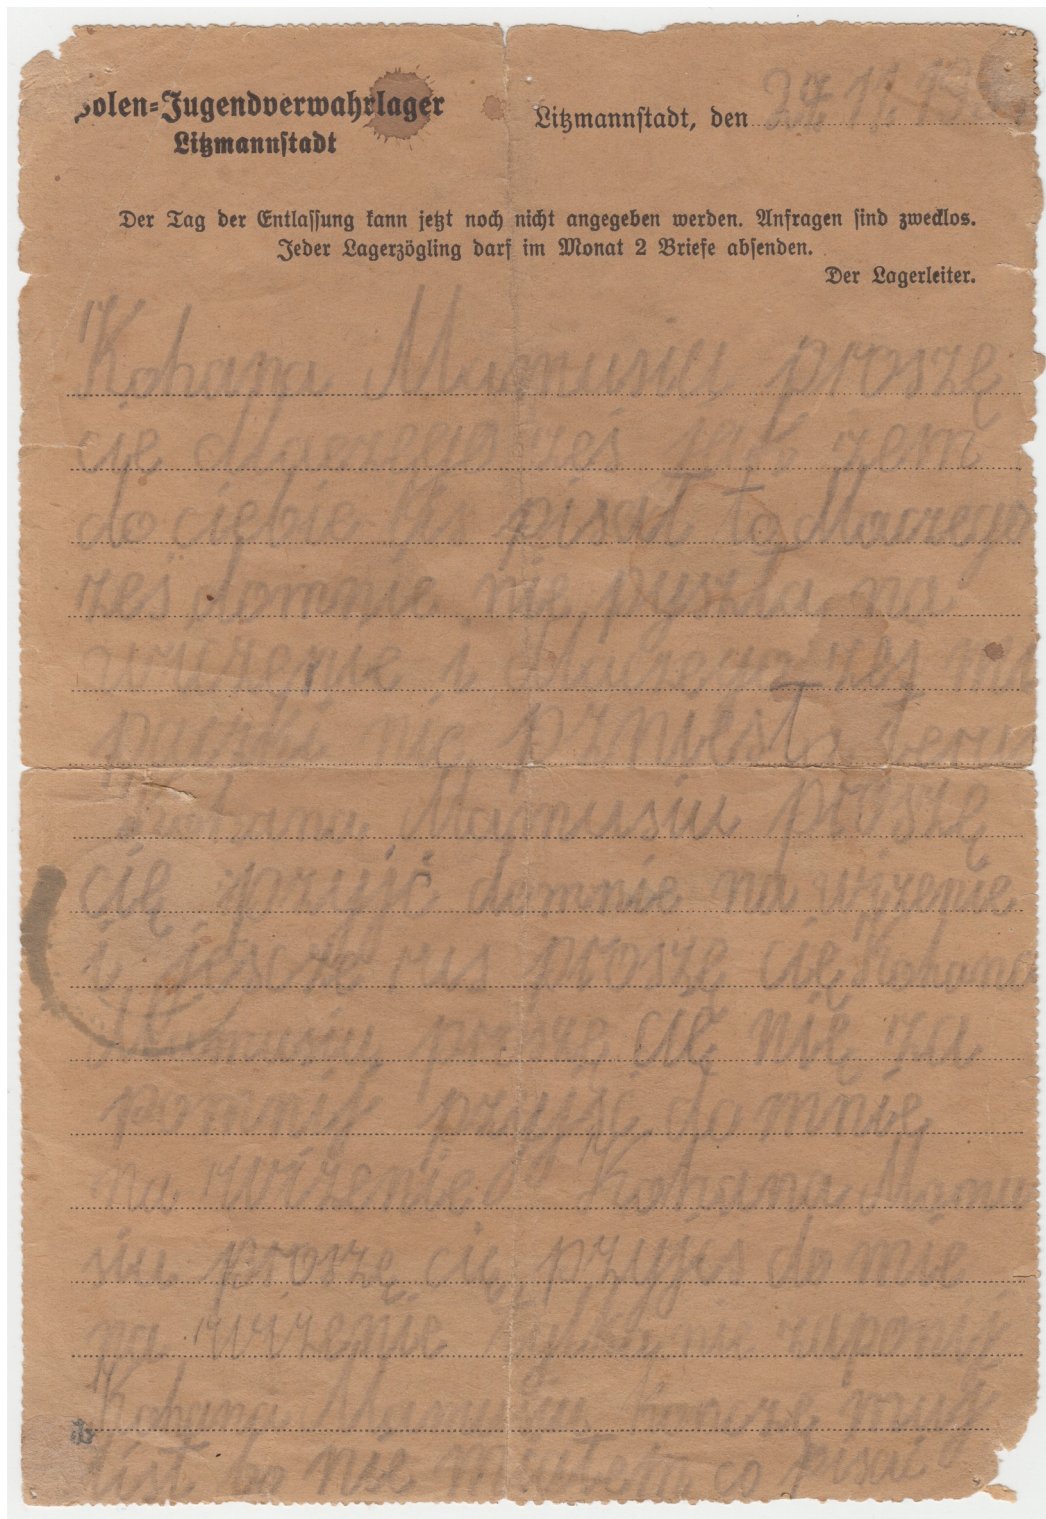 Polen-Jugendverwahrlager
Litzmannstadt
Litzmannstadt, den 27 11 43
Der Tag der Entlassung kann jetzt noch nicht angegeben werden. Anfragen sind zwecklos.
Jeder Lagerzögling darf im Monat 2 Briefe absenden.
Der Lagerleiter.
Kohana Mamusiu proszę
cię dlaczego żeś jak żem
do ciebie lis pisał to dlaczego
żeś domnie nie pyszła na
i dlaczego żeś mi
paczki nie pzniesł
Kohana Mamusiu proszę
cię pzyjć domnie na wizenie
i jescze ras proszę cię Kohana
Mamusiu proszę cię nie za
pomnij pzyjść do mnie
na wizenie Kohana Mamu
siu proszę cię pzyjcs do mie
na nie zaponij
Kohana Mamusiu koncze muj
list bo nie miałem co pisać